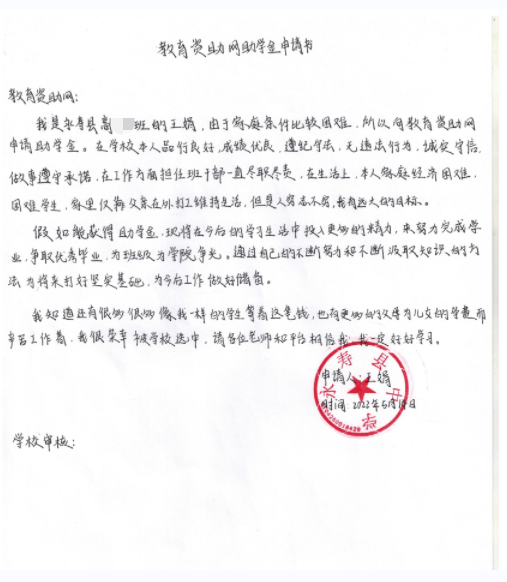 教育资助网助学金申请书
教育资助网:
我是永寿县高 班的王娟,由于家庭条件比较困难,所以向教育资助网
申请助学金。在学校本人品行良好,成绩优良,遵纪守法,无违法行为,诚实守信,
做事遵守承诺,在工作方面担任班干部一直尽职尽责,在生活上,本人家庭经济困难,
困难学生,家里仅靠父亲在外打工维持生活,但是人穷志不穷,我有远大的目标。
假如能获得助学金,现将在今后的学习生活中投入更多的精力,来努力完成学
业,争取优秀毕业,为班级为学院争光。通过自己的不断努力和不断汲取知识的方
法为将来打好坚实基础,为今后工作做好储备。
我知道还有很多很多像我一样的学生等着这笔钱,也有更多的父母为儿女的学费而
辛苦工作着,我很荣幸被学校选中,请各位老师和平台相信我,我一定好好学习。
申请人:王娟
时间:2022年5月19日
永寿县中
学校审核: